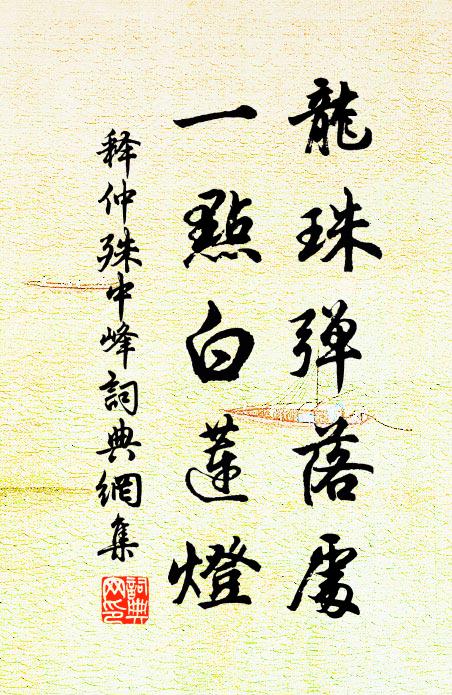 龍珠弹落處
一點白蓮燈
释仲殊中峰詞典網集
詞典網印